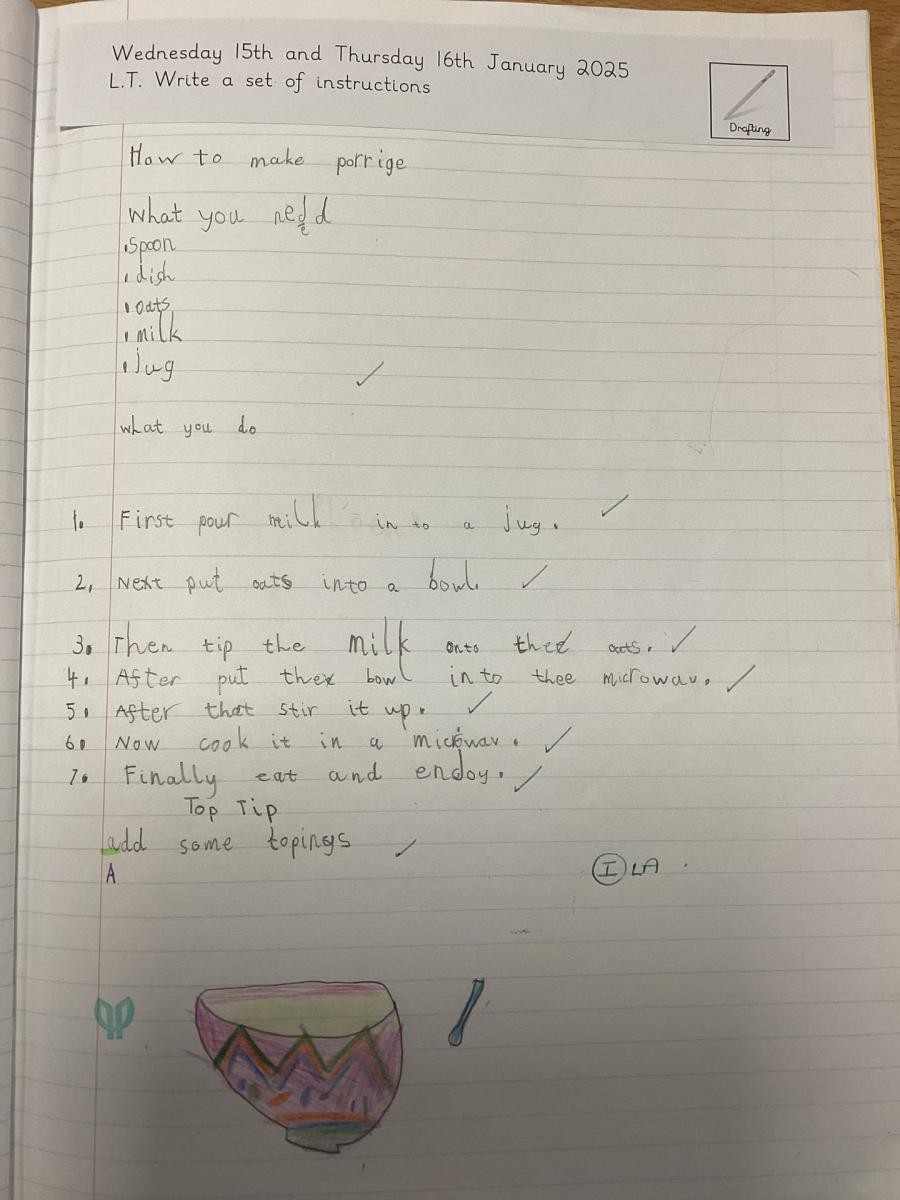 Wednesday 15th and Thursday 16th January 2025
L.T. Write a set of instructions
Drafting
How to make porrige
What you need
.spoon
.dish
.oats
.milk
.jug
what you do
1. First pour milk in to a jug.
2, Next put oats into a bowl.
3. Then tip the milk onto the oats.
4. After put the bowl in to thee microwav.
5. After that stir it up.
6. Now cook it in a microwav.
7. Finally eat and endoy.
Top Tip
add some topings
A
I LA